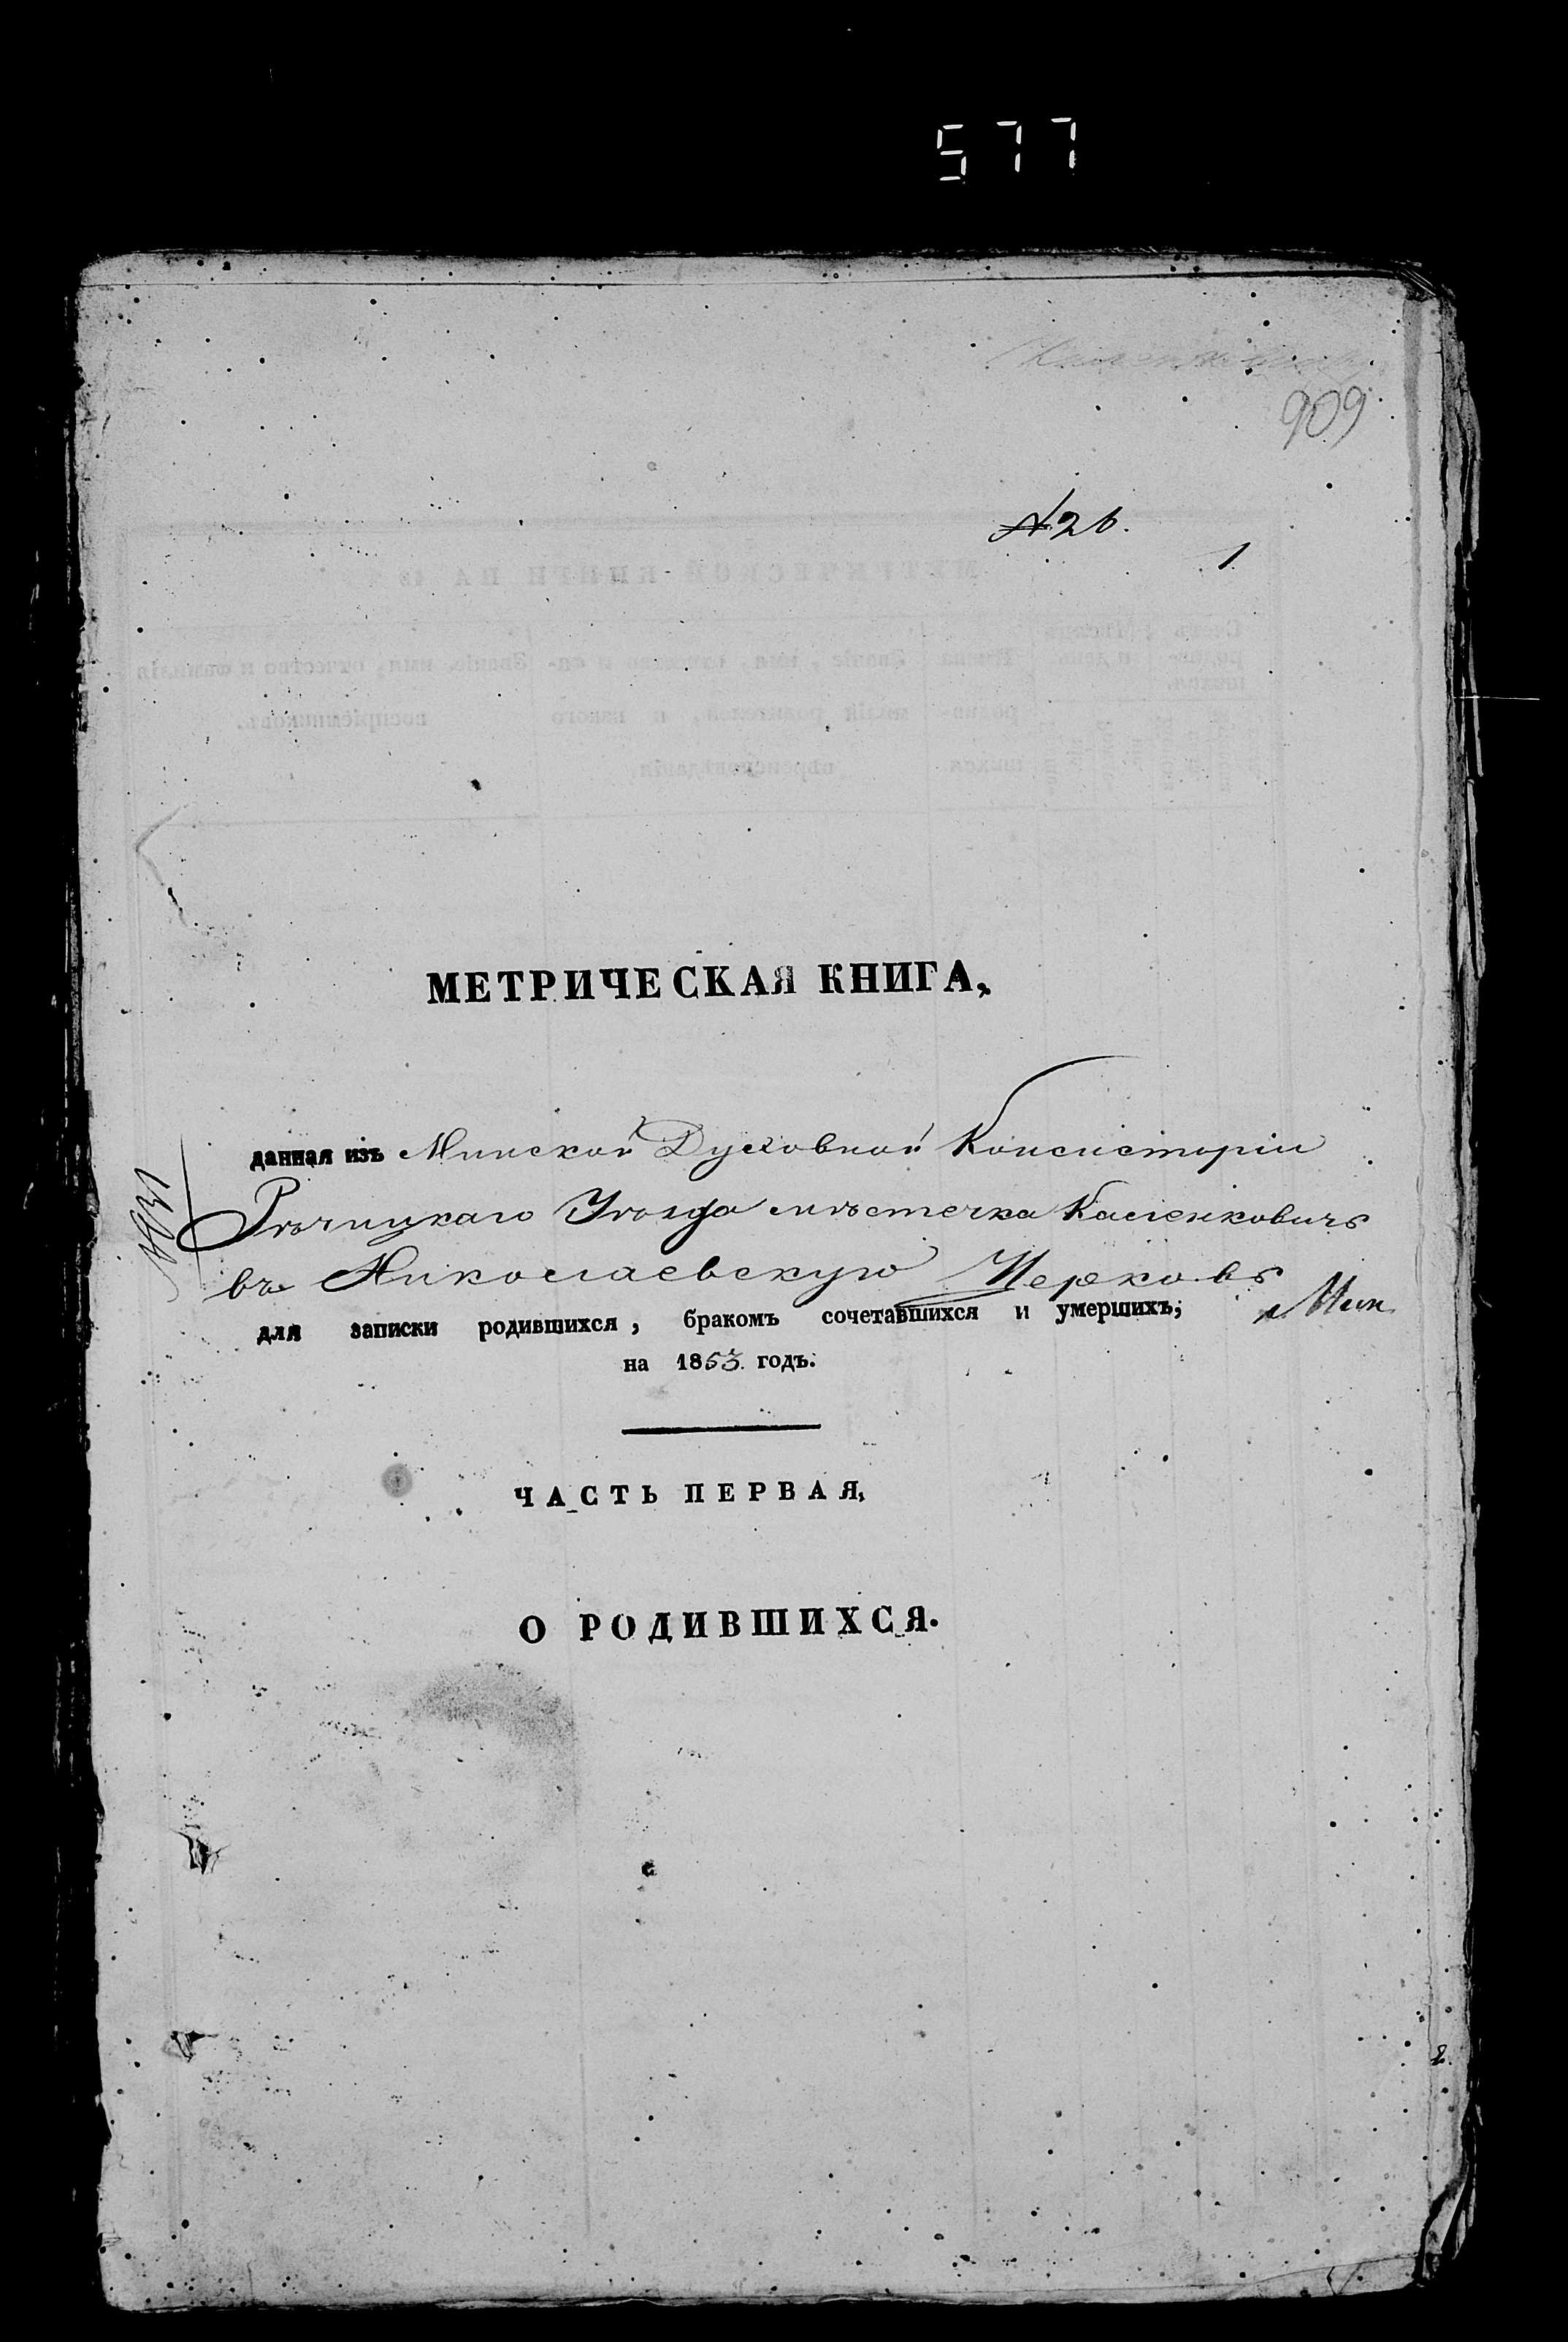 577
909
№ 26.
1
МЕТРИЧЕСКАЯ КНИГА,
данная изъ Минской Духовной Консисторіи
Рѣчицкаго Уѣзда мѣстечка Каленковичь
въ Николаевскую Церковь
для записки родившихся, бракомъ сочетавшихся и умершихъ,
на 1853 годъ.
ЧАСТЬ ПЕРВАЯ,
О РОДИВШИХСЯ.